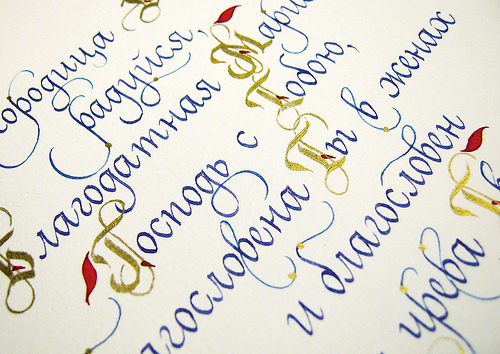 ородица
радуйся,
Благодатная Мари
Господь с Тобою,
агословена Ты в женах
и благословен
чрева Тв